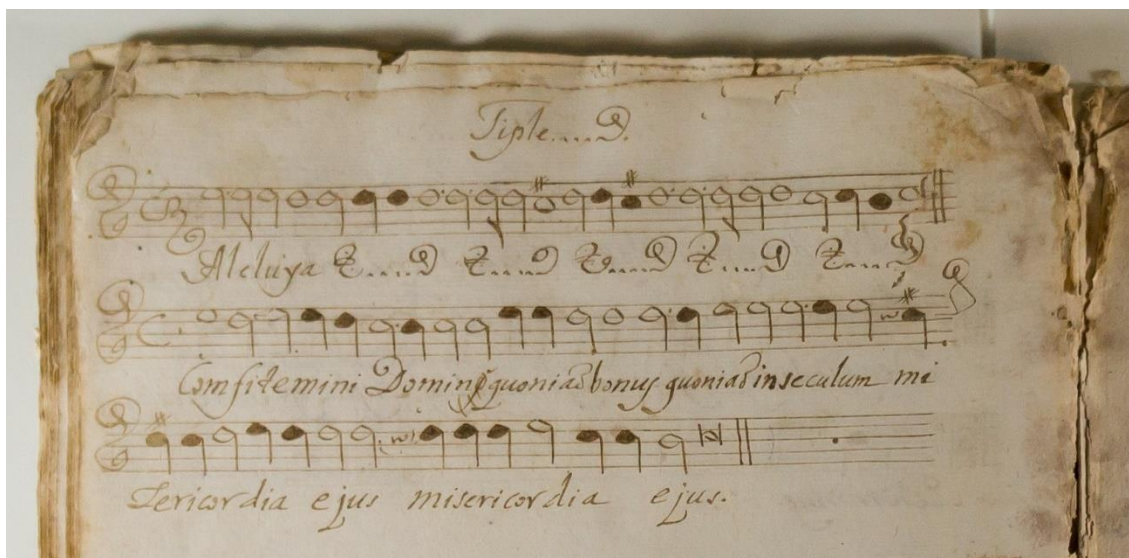 Tiple
Aleluya
Confitemini Domino quoniã bonus quoniã in seculum mi
sericordia ejus misericordia ejus.